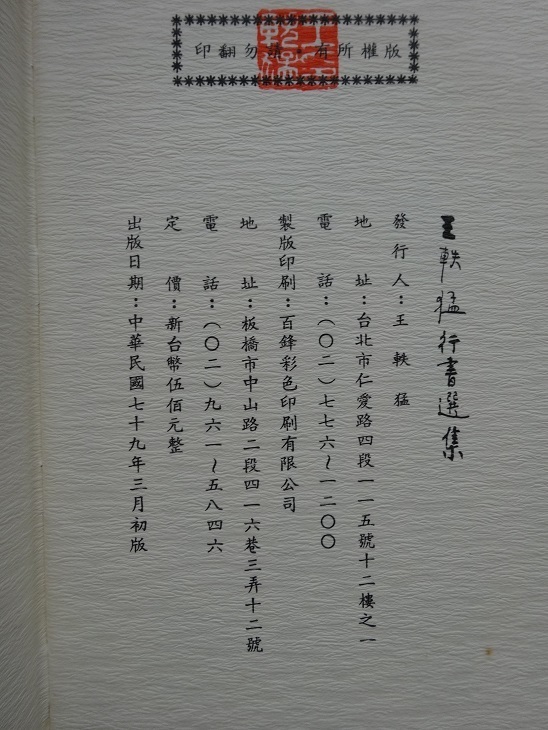 版權所有•請勿翻印
王軼猛行書選集
發行人：王軼猛
地址：台北市仁愛路四段一一五號十二樓之一
電話：（〇二）七七六～一二〇〇
製版印刷：百鋒彩色印刷有限公司
地址：板橋市中山路二段四一六巷三弄十二號
電話：（〇二）九六一～五八四六
定價：新台幣伍佰元整
出版日期：中華民國七十九年三月初版